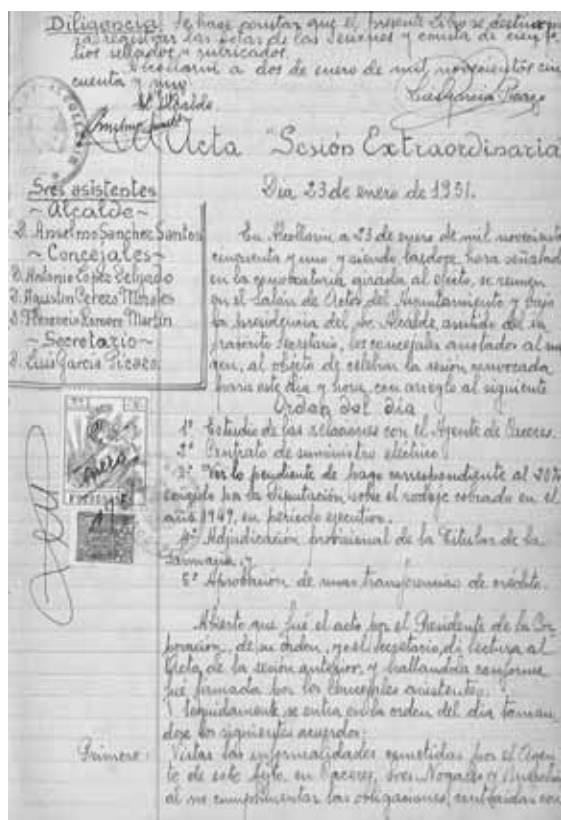 Diligencia. Se hace constar que el presente Libro se destina pa
ra registrar las actas de las sesiones y consta de cien fo
lios sellados y rubricados.
Alcollarin a dos de enero de mil novecientos cin
cuenta y uno
El Alcalde
Luis García Picazo
Acta "Sesión Extraordinaria
Dia 23 de enero de 1951.
Sres asistentes
~Alcalde~
D. Anselmo Sanchez Santos
~Concejales~
D. Antonio Lopez Delgado
D. Agustin Cerezo Morales
D. Florencio Martin
~Secretario~
D. Luis Garcia Picazo
En Alcollarin a 23 de enero de mil novecientos
cincuenta y uno y siendo las doce, hora señalada
en la convocatoria girada al efecto, se reunen
en el salon de Actos del Ayuntamiento y bajo
la presidencia del Sr. Alcalde, asistido del in
frascrito Secretario, los concejales anotados al mar
gen, al objeto de celebrar la sesión convocada
para este dia y hora, con arreglo al siguiente
Orden del dia
1º Estudio de las relaciones con el Agente de Caceres.
2º Contrato de suministro eléctrico
3º Ver lo pendiente de pago correspondiente al 20%
exigido por la Diputación sobre el rodaje cobrado en el
año 1949, en periodo ejecutivo.
4º Adjudicación provisional de la Titular de la
Farmacia, y
5º Aprobación de unas transferencias de crédito.
Abierto que fué el acto por el Presidente de la Cor
poración, de su orden, yo el Secretario, di lectura al
Acta de la sesión anterior, y hallandola conforme
fue firmada por los Concejales asistentes.
Seguidamente, se entra en la orden del dia toman
dose los siguientes acuerdos:
Primero: Vistas las informalidades cometidas por el Agen
te de este Ayto. en Caceres, Sres Nogales y
al no cumplimentar las obligaciones contraidas con